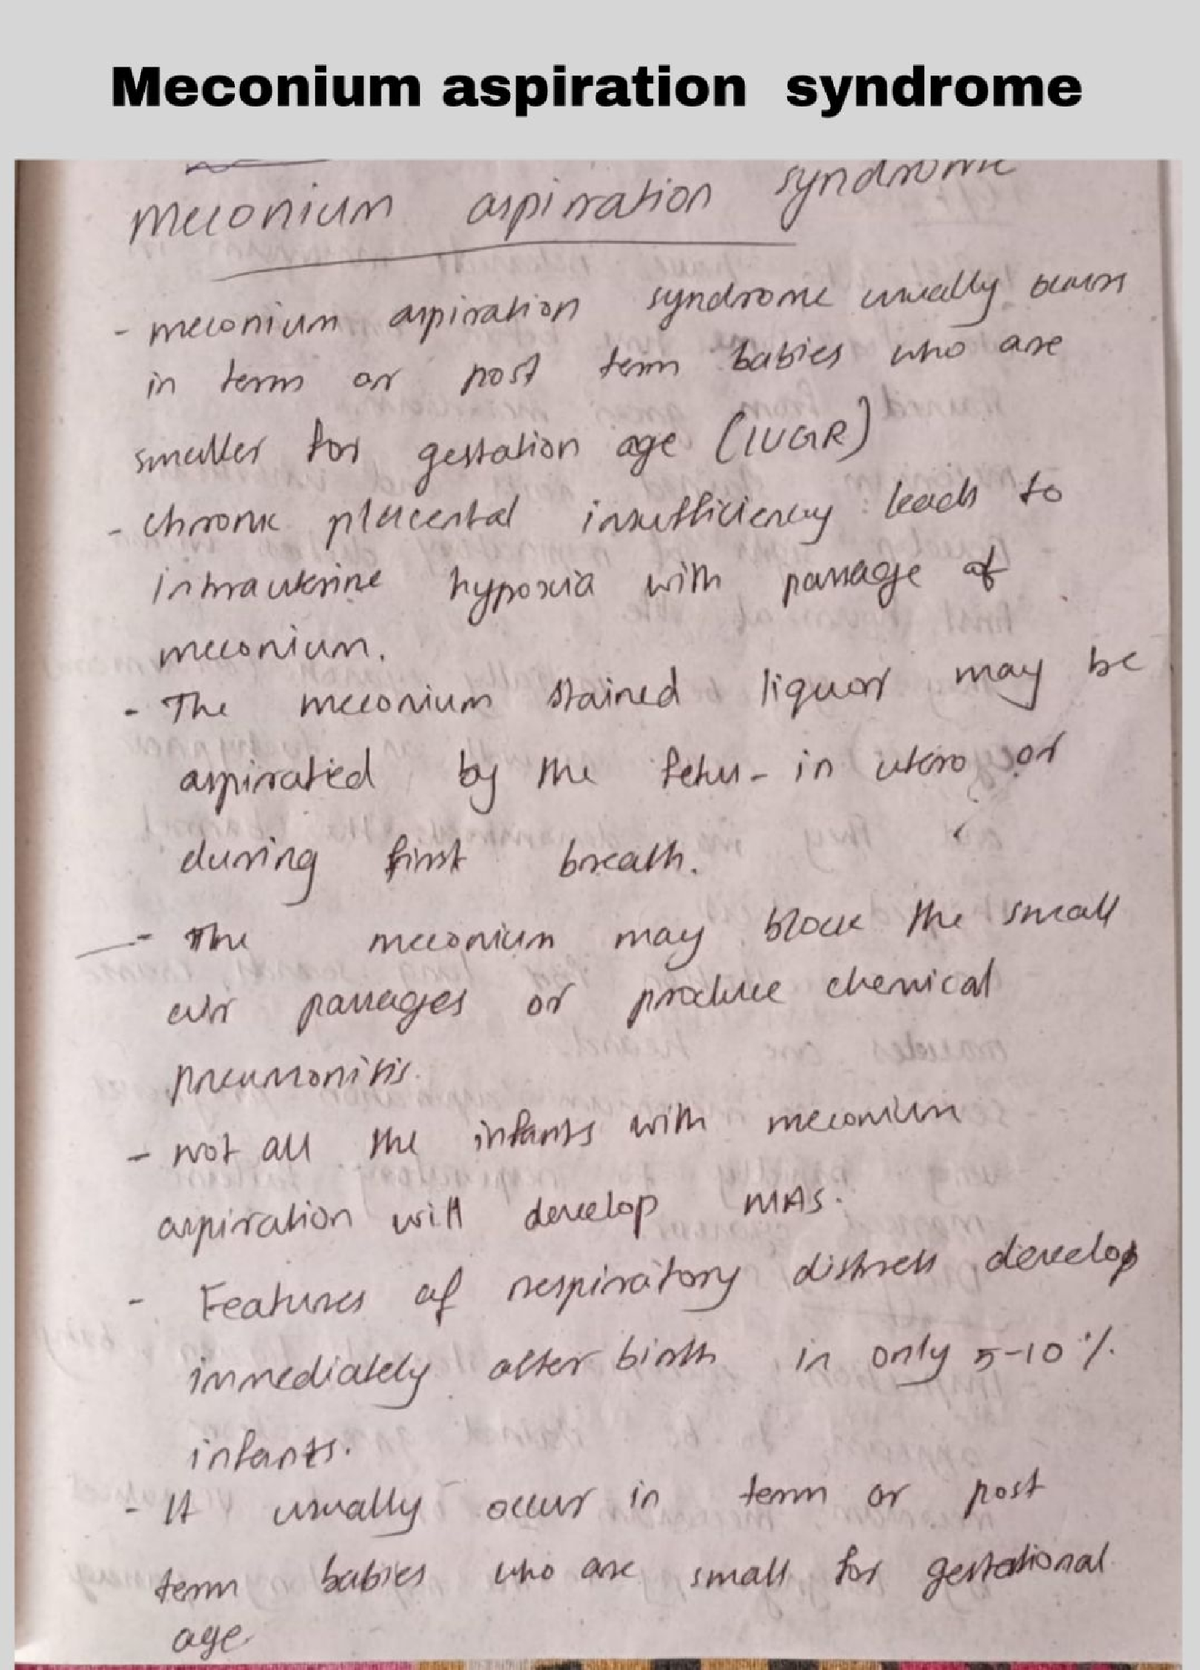 Meconium aspiration syndrome
Meconium aspiration syndrome
- meconium aspiration syndrome usually occurs
in term or post term babies who are
smaller for gestation age (IUGR)
- chronic placental insufficiency leads to
intrauterine hypoxia with passage of
meconium.
- The meconium stained liquor may be
aspirated by the fetus - in utero or
during first breath.
- The meconium may block the small
air passages or produce chemical
pneumonitis.
- not all the infants with meconium
aspiration will develop MAS.
- Features of respiratory distress develop
immediately after birth in only 5-10%
infants.
- It usually occur in term or post
term babies who are small for gestational
age